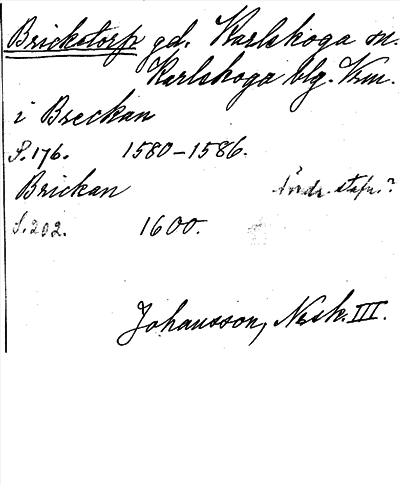 Brickstorp gd. Karlskoga sn.
Karlskoga blg. Vrm.
i Breckan
S. 176. 1580-1586.
Brickan Ändr. stafn.?
S. 202. 1600.
Johansson, Nsk. III.